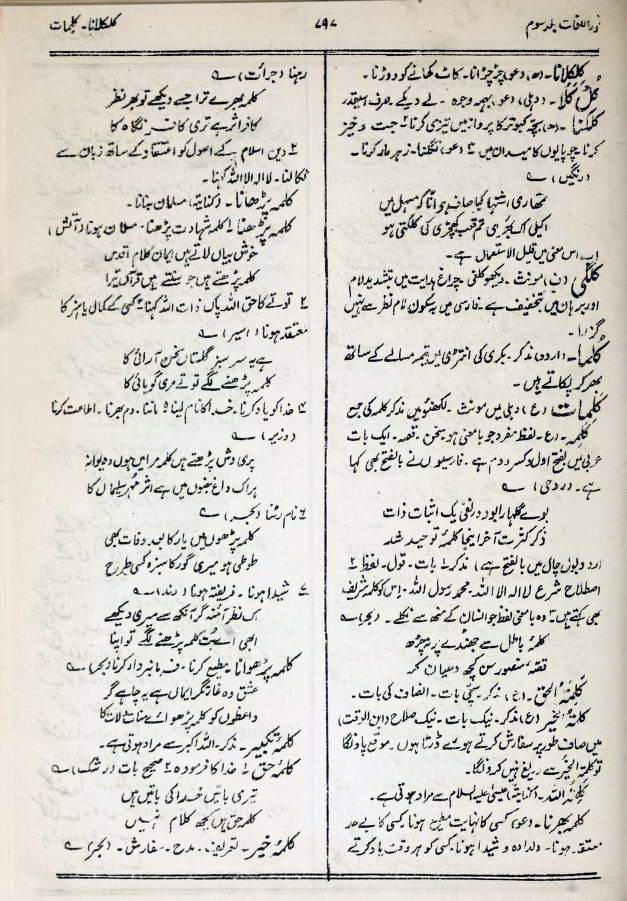 نور اللغات جلد سوم
۷۹۷
کلکلانا۔ کلمات
کلکلانا۔ (ھ) (عو) چڑچڑانا۔ کاٹ کھانے کو دوڑنا۔
کل کلا۔ (دہلی) (عو) بہمہ وجوہ۔ لے دیکے۔ صرف اسیقدر
کلکنا۔ (ھ) بچہ کبوتر کا پرواز میں تیزی کرنا ۲ جست و خیز
کرنا چوپایوں کا میدان میں ۳ (عو) نگلنا۔ زہر مار کرنا۔
(رنگیں) ؎
تمھاری اشتہا کیا صاف ہی انا گر مسہل میں
اکیلی اک بھری تم قعب کھچڑی کی کلکتی ہو
اب اس معنی میں قلیل الاستعمال ہے۔
کلگی (ف) مونث۔ دیکھو کلغی۔ چراغ ہدایت میں بتشدید لام
اور برہان میں بتخفیف ہے۔ فارسی میں بسکون لام نظر سے نہیں
گزرا۔
کلما۔ (اردو) مذکر۔ بکری کی انتڑی میں قیمہ مسالے کے ساتھ
بھر کر پکاتے ہیں۔
کلمات (ع) دہلی میں مونث۔ لکھنؤ میں مذکر کلمہ کی جمع
کلمہ۔ (ع۔ لفظ مفرد جو با معنی ہو۔ سخن۔ قصہ۔ ایک بات
عربی میں بفتح اول و کسر دوم ہے۔ فارسیوں نے بالفتح بھی کہا
ہے۔ (روحی) ؎
بوے گلہا را بود در نفی یک اثبات ذات
ذکر کثرت آخر اینجا کلمۂ توحید شد
اردو بول چال میں بالفتح ہے) مذکر ۱ بات۔ قول۔ لفظ ۲
اصطلاح شرع لا الہ الا اللہ۔ محمد رسول اللہ۔ اس کو کلمہ شریف
بھی کہتے ہیں ۳ وہ با معنی لفظ جو انسان کے منھ سے نکلے۔ (بحر) ؎
کلمۂ باطل سے جھنڈے پر نہ چڑھ
قصۂ منصور سن کچھ دھیان کر
کلمۃ الحق۔ (ع) مذکر۔ سچی بات۔ انصاف کی بات۔
کلمۃ الخیر (ع) مذکر۔ نیک بات۔ نیک صلاح (ابن الوقت)
میں صاف طور پر سفارش کرتے ہوئے ڈرتا ہوں۔ موقع پاؤنگا
تو کلمۃ الخیر سے دریغ نہیں کرونگا۔
کلمۃ اللہ۔ (کنایۃً) عیسیٰ علیہ السلام سے مراد ہوتی ہے۔
کلمہ بھرنا۔ (عو) کسی کا نہایت مطیع ہونا۔ کسی کا بے حد
معتقد ہونا۔ دلدادہ و شیدا ہونا۔ کسی کو ہر وقت یاد کرتے
رہنا (جرأت) ؎
کلمہ بھرے ترا جسے دیکھے تو بھر نظر
کافر اثر ہے تری کافر نگاہ کا
۲ دین اسلام کے اصول کو اعتقاد کے ساتھ زبان سے
نکالنا۔ لا الہ الا اللہ کہنا۔
کلمہ پڑھانا۔ (کنایۃً) مسلمان بنانا۔
کلمہ پڑھنا ۱ کلمہ شہادت پڑھنا۔ مسلمان ہونا (آتش)
خوش بیاں لاتے ہیں ایمان کلام اقدس
کلمہ پڑھتے ہیں جو سنتے ہیں قرآں تیرا
۲ توتے کا حق اللہ پاک ذات اللہ کہنا ۳ کسی کے کمال یا ہنر کا
معتقد ہونا (اسیر) ؎
ہے یہ سرسبز گلستاں سخن آرائی کا
کلمہ پڑھنے لگے توتے مری گویائی کا
۴ خدا کو یاد کرنا۔ خدا کا نام لینا ۵ ماننا۔ دم بھرنا۔ اطاعت کرنا
(وزیر) ؎
پری وش پڑھتے ہیں کلمہ مرا میں ہوں وہ دیوانہ
ہر اک داغ جنوں میں ہے اثر مہر سلیماں کا
۶ نام رٹنا (بحر) ؎
کلمہ پڑھوں میں یار کا بعد وفات بھی
طوطی ہو میری گور کا سبزہ کسی طرح
۷ شیدا ہونا۔ فریفتہ ہونا (رند) ؎
اک نظر آئنہ گر آنکھ سے میری دیکھے
ابھی اے بت کلمہ پڑھنے لگے تو اپنا
کلمہ پڑھوانا۔ مطیع کرنا۔ فرمانبردار کرنا (بحر) ؎
عشق وہ غارتگر ایماں ہے یہ چاہے گر
واعظوں کو کلمہ پڑھوائے لات کا
کلمۂ تکبیر۔ مذکر۔ اللہ اکبر سے مراد ہوتی ہے۔
کلمۂ حق ۱ خدا کا فرمودہ ۲ صحیح بات (رشک) ؎
تیری باتیں خدا کی باتیں ہیں
کلمۂ حق ہیں کچھ کلام نہیں
کلمۂ خیر۔ تعریف۔ مدح۔ سفارش۔ (بحر) ؎